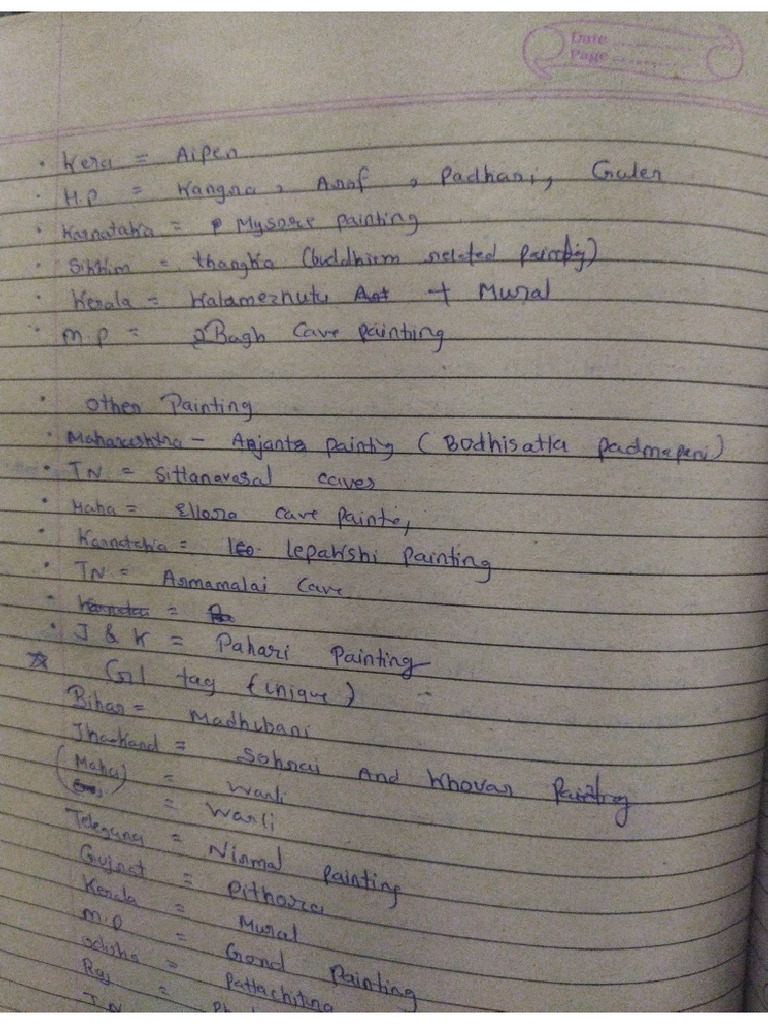 Date
Page
• Kera = Aipen
• H.P = Kangra, Arof, Padhari, Guler
• Karnataka = Mysore painting
• Sikkim = thangka (buddhism related painting)
• Kerala = Kalamezhutu Art + Mural
• M.P = Bagh Cave painting
• other Painting
• Maharashtra - Anjanta painting (Bodhisatla padmapani)
• TN = Sittanavasal caves
• Maha = Ellora cave Painte,
• Karnataka = lepakshi painting
• TN = Armamalai Cave
• J & K = Pahari Painting
☆ GI tag (unique)
Bihar = Madhubani
Jharkand = Sohrai And Khovar Painting
(Maha) = Warli
= Warli
Telegana = Nirmal painting
Gujrat = Pithora
Kerala = Mural
M.P = Gond Painting
odisha = Pattachitra
Raj =
TN